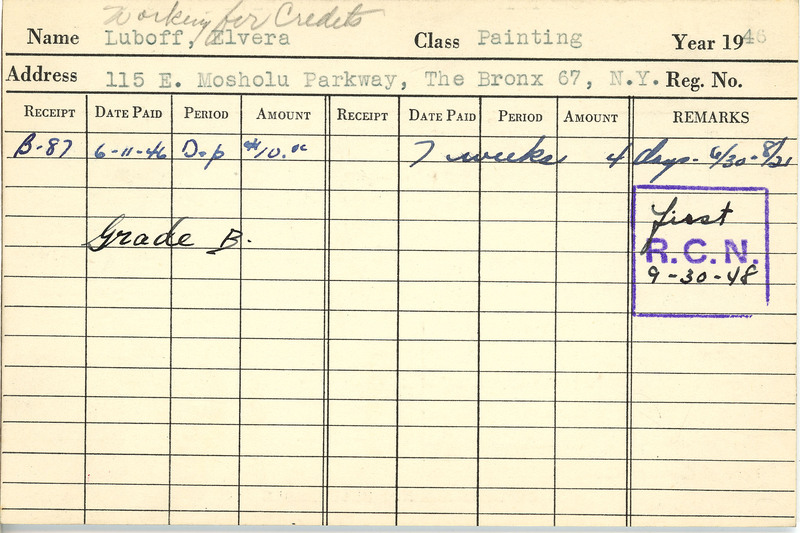 Working for Credits
Name Luboff, Elvera Class Painting Year 1946
Address 115 E. Mosholu Parkway, The Bronx 67, N.Y. Reg. No.
RECEIPT DATE PAID PERIOD AMOUNT RECEIPT DATE PAID PERIOD AMOUNT REMARKS
B-87 6-11-46 Dep $10.00 7 weeks 4 days - 6/30 - 8/21
first
Grade B.
R.C.N.
9-30-48